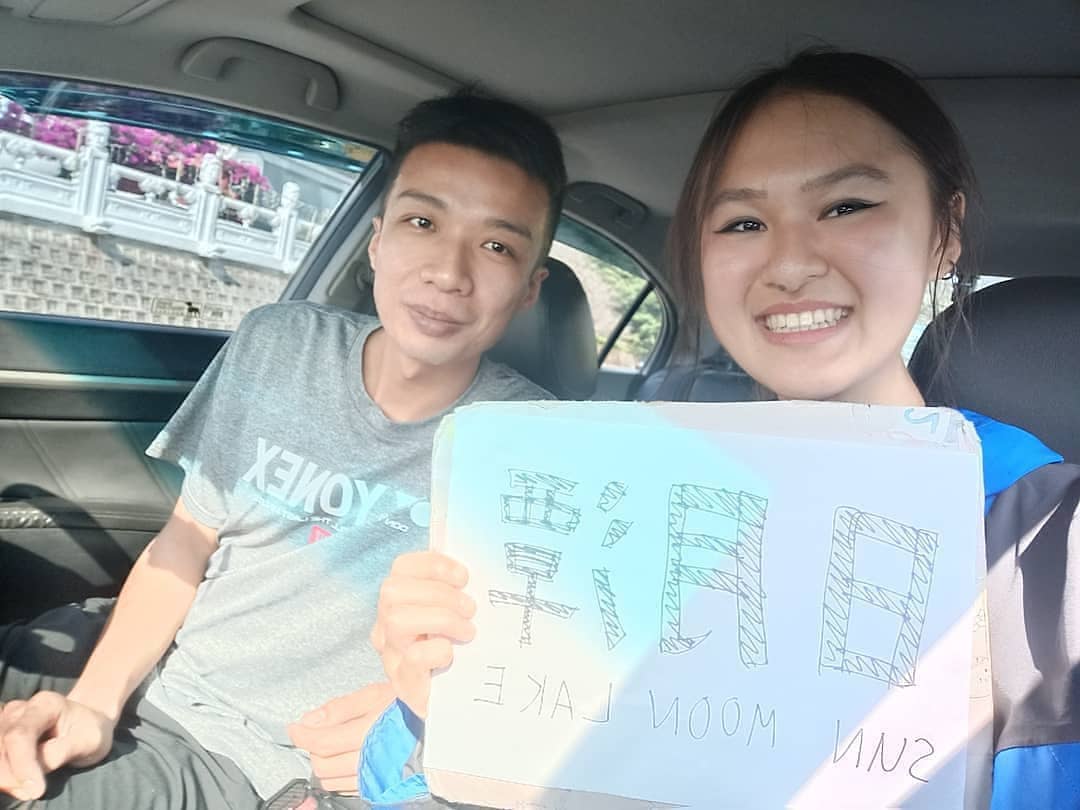 YONEX
日月潭
SUN MOON LAKE